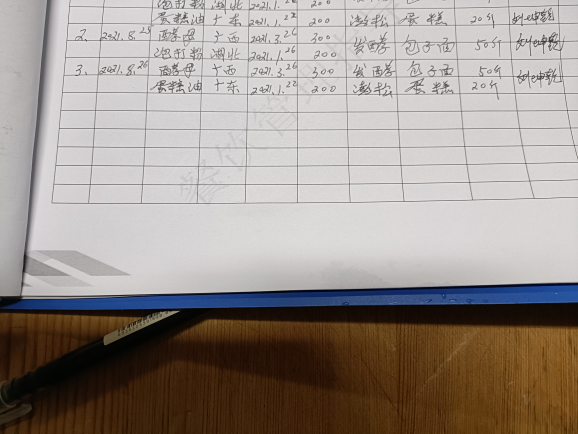 泡打粉 湖北 2021.1.26 200
蛋糕油 广东 2021.1.22 200 澎松 蛋糕 20斤
2. 2021.8.25 酵母 广西 2021.3.26 300 发酵 包子面 50斤
泡打粉 湖北 2021.1.26 200
3. 2021.8.26 酵母 广西 2021.3.26 300 发酵 包子面 50斤
蛋糕油 广东 2021.1.22 200 澎松 蛋糕 20斤
餐饮管